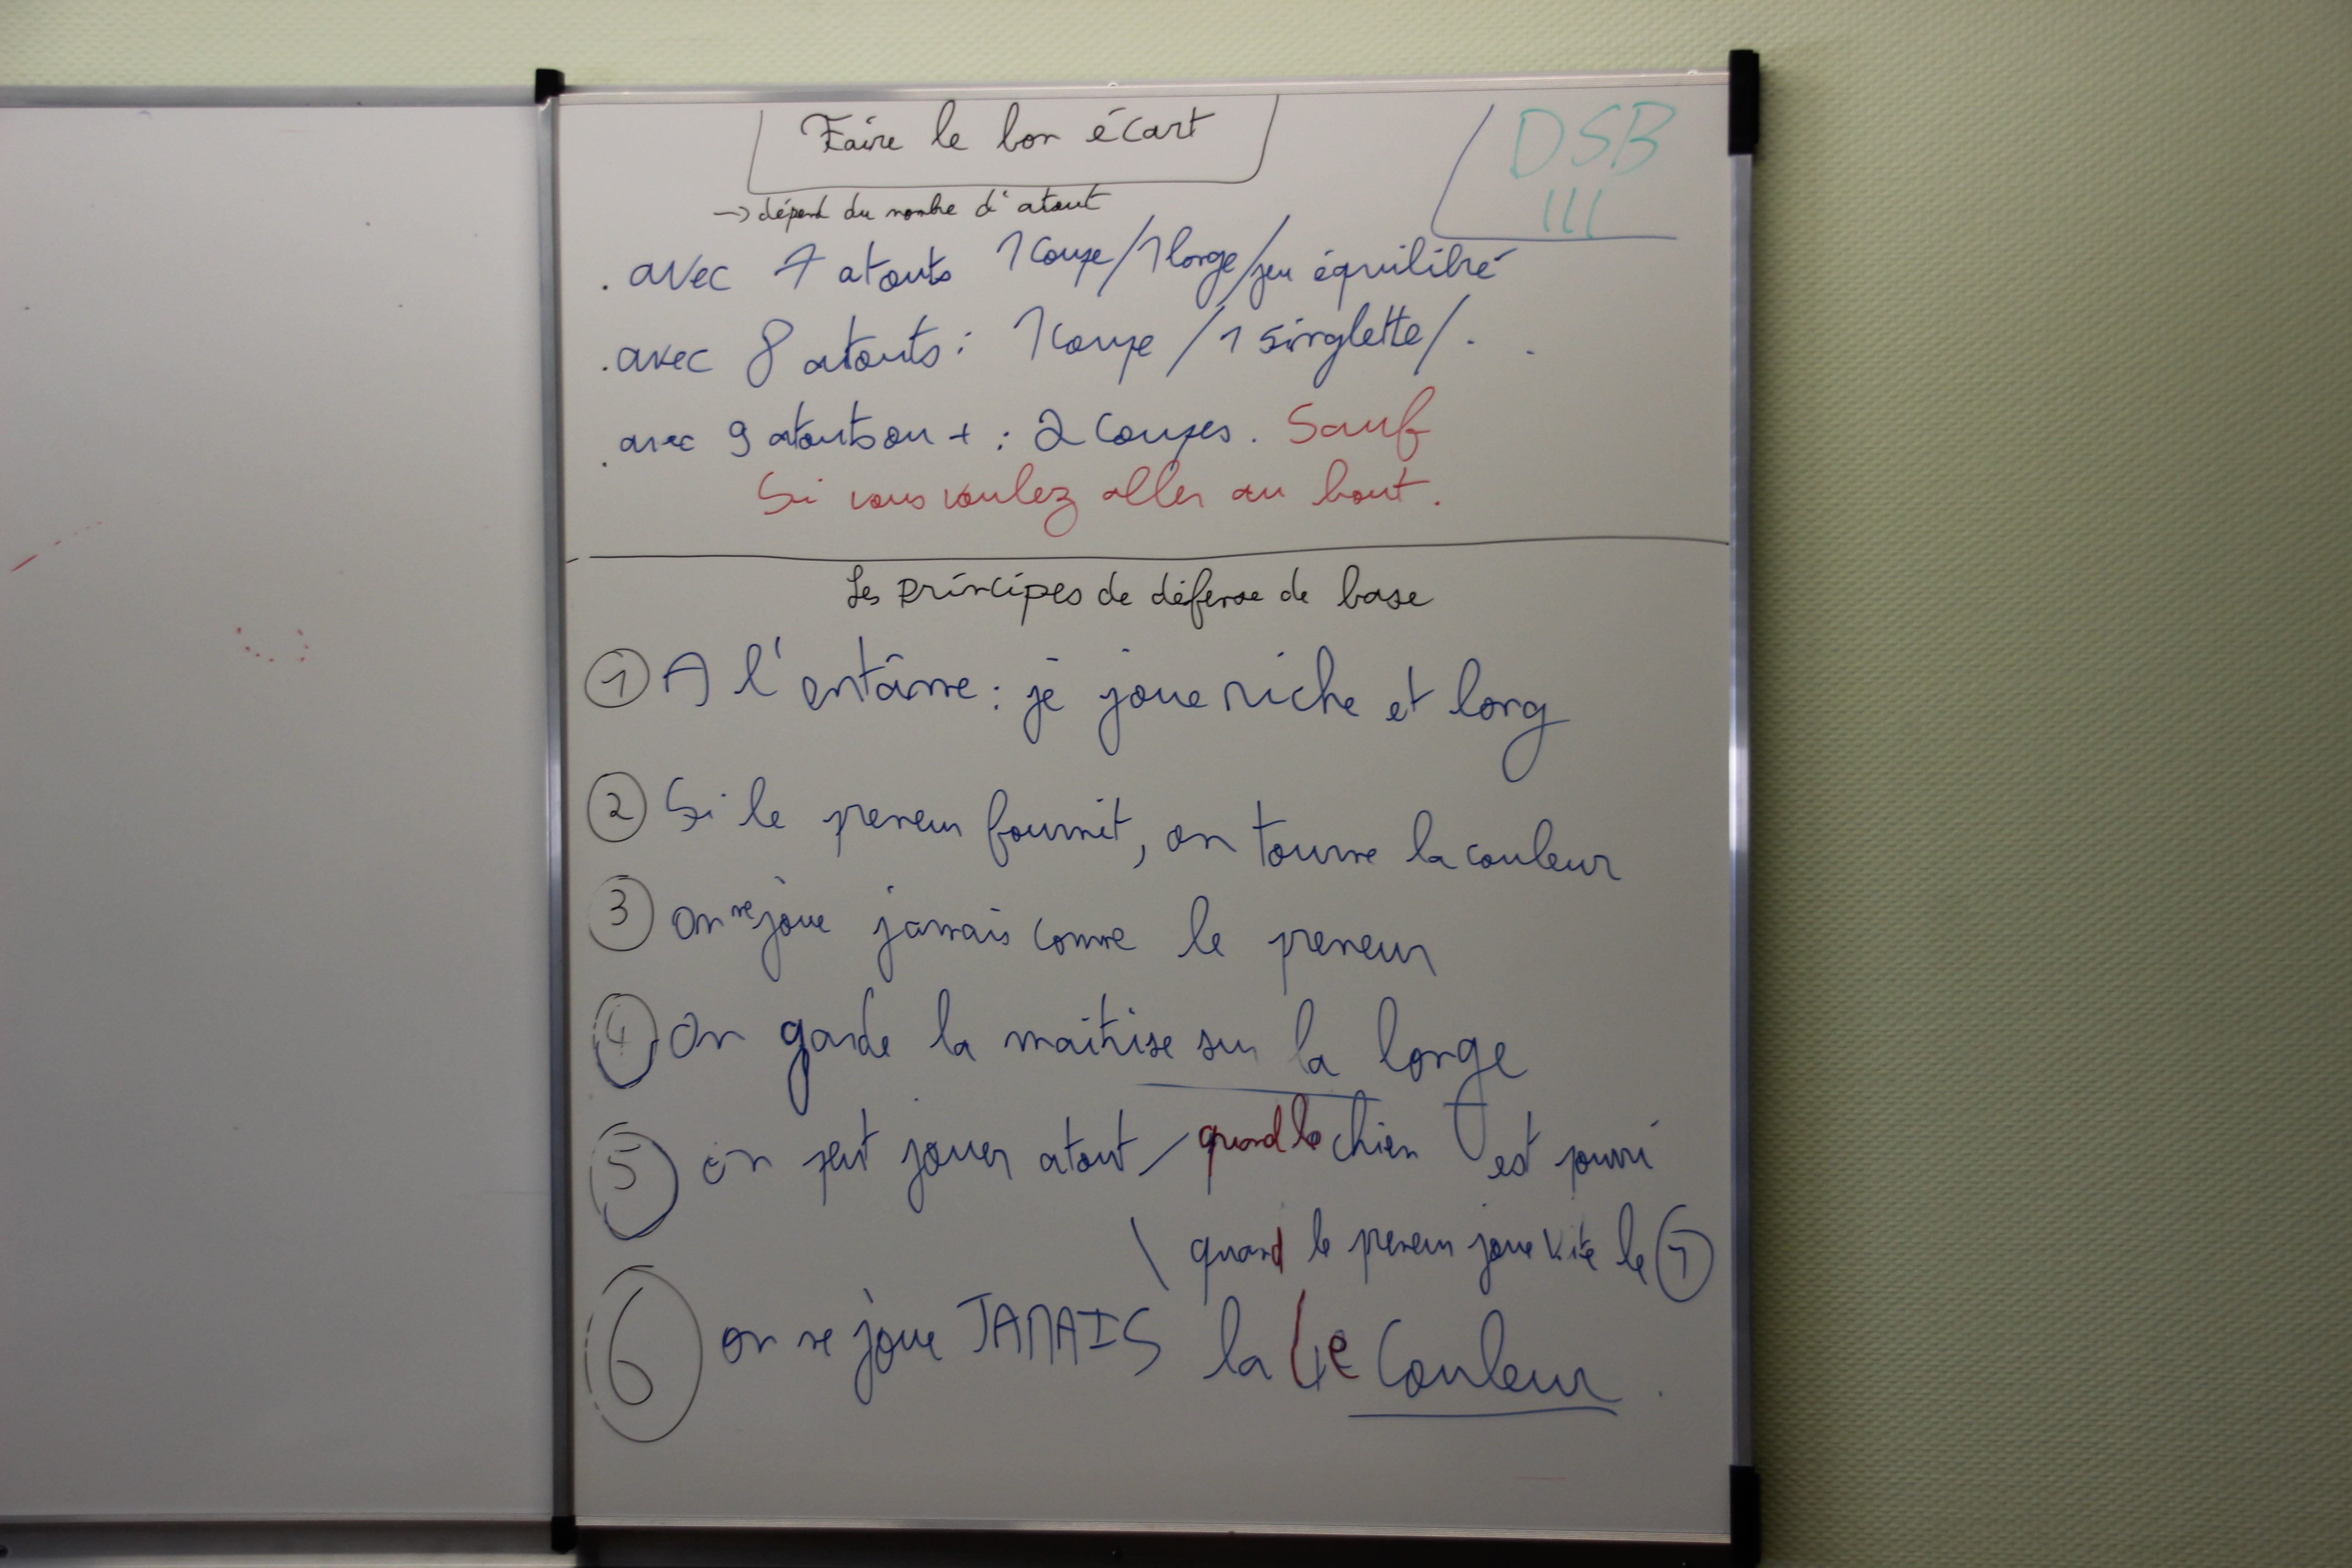 Faire le bon écart
DSB
III
-> dépend du nombre d'atout
. avec 7 atouts 1 coupe/1 longe/jeu équilibré
. avec 8 atouts : 1 coupe / 1 singlette/. .
. avec 9 atouts ou + : 2 coupes. Sauf
Si vous voulez aller au bout.
Les principes de défense de base
1 A l'entâme : je joue riche et long
2 Si le preneur fournit, on tourne la couleur
3 on ne joue jamais comme le preneur
4 On garde la maitrise sur la longe
5 on peut jouer atout / quand le chien est pourri
\ quand le preneur joue vite le 1
6 on ne joue JAMAIS la 4e couleur.